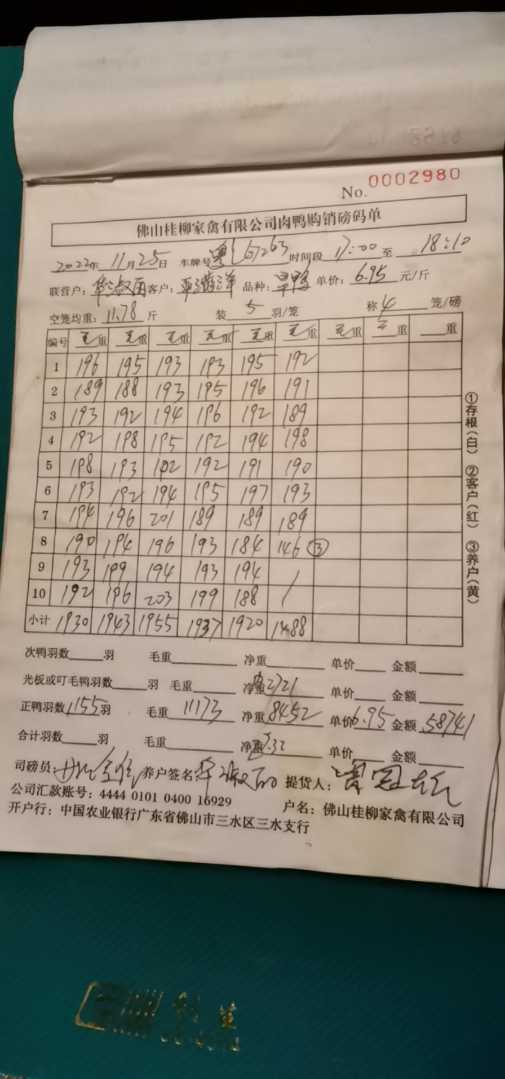 No. 0002980
佛山桂柳家禽有限公司肉鸭购销磅码单
2022年 11月 25日 车牌号 粤 67263 时间段 17:00 至 18:10
联营户: 客户: 品种: 旱鸭 单价: 6.95 元/斤
空笼均重: 11.78 斤 装 5 羽/笼 称 4 笼/磅
编号 毛重 毛重 毛重 毛重 毛重 毛重 毛重 重 重
1 196 195 193 193 195 192
2 189 188 193 195 196 191
3 193 192 194 196 192 189
4 192 198 195 192 194 198
5 198 193 192 192 191 190
6 193 192 194 195 197 193
7 194 196 201 189 189 189
8 190 194 196 193 184 146 ③
9 193 199 194 193 194 /
10 192 196 203 199 188 /
小计 1930 1943 1955 1937 1920 1488
①存根(白) ②客户(红) ③养户(黄)
次鸭羽数 羽 毛重 净重 单价 金额
光板或叮毛鸭羽数 羽 毛重 净重 2721 单价 金额
正鸭羽数 1155 羽 毛重 11173 净重 8452 单价 6.95 金额 58741
合计羽数 羽 毛重 净重 7.32 单价 金额
司磅员: 养户签名: 提货人:
公司汇款账号: 4444 0101 0400 16929 户名: 佛山桂柳家禽有限公司
开户行: 中国农业银行广东省佛山市三水区三水支行